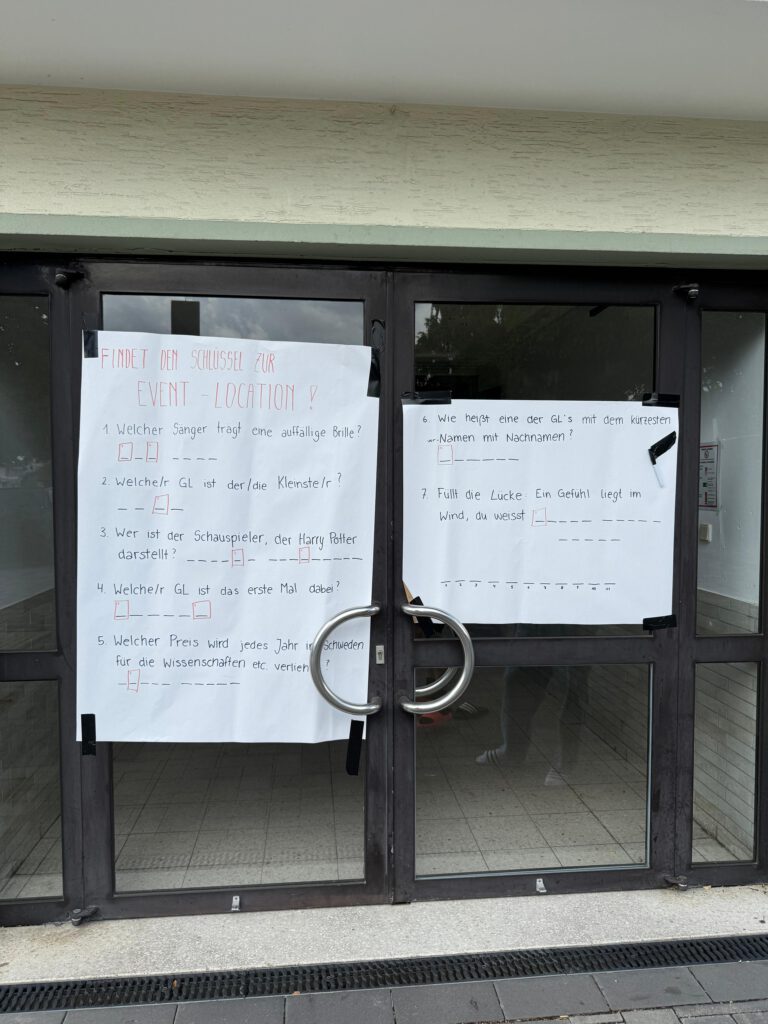 FINDET DEN SCHLÜSSEL ZUR
EVENT-LOCATION !
1. Welcher Sänger trägt eine auffällige Brille?
_ _ _ _ _ _ _
2. Welche/r GL ist der/die Kleinste/r?
_ _ _ _
3. Wer ist der Schauspieler, der Harry Potter
darstellt? _ _ _ _ _ _ _ _ _ _ _ _ _ _
4. Welche/r GL ist das erste Mal dabei?
_ _ _ _ _ _
5. Welcher Preis wird jedes Jahr in Schweden
für die Wissenschaften etc. verliehen?
_ _ _ _ _ _ _ _ _ _
6. Wie heißt eine der GL's mit dem kürzesten
Namen mit Nachnamen?
_ _ _ _ _ _
7. Füllt die Lücke: Ein Gefühl liegt im
Wind, du weisst _ _ _ _ _ _ _ _ _ _
_ _ _ _ _
1 2 3 4 5 6 7 8 9 10 11